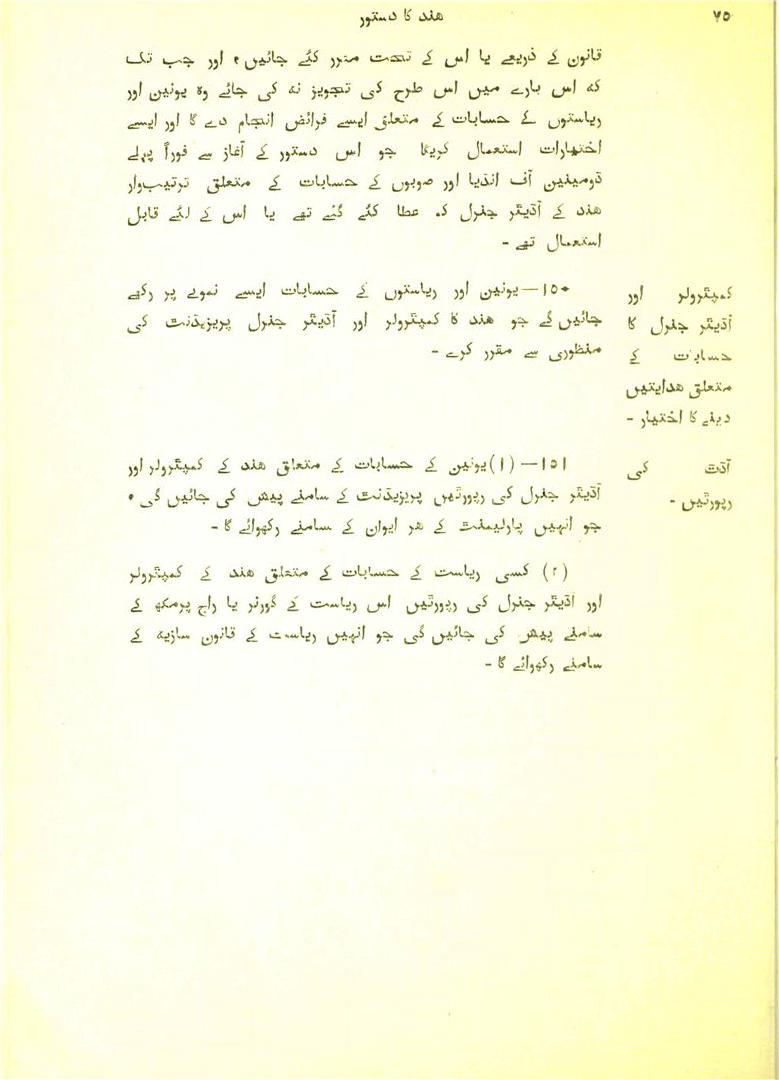 ۷۵
هند کا دستور
قانون کے ذریعے یا اس کے تحت مقرر کئے جائیں؛ اور جب تک
که اس بارے میں اس طرح کی تجویز نه کی جائے وہ یونین اور
ریاستوں کے حسابات کے متعلق ایسے فرائض انجام دے گا اور ایسے
اختیارات استعمال کریگا جو اس دستور کے آغاز سے فوراً پہلے
ڈومینین آف انڈیا اور صوبوں کے حسابات کے متعلق ترتیب‌وار
هند کے آڈیٹر جنرل کو عطا کئے گئے تھے یا اس کے لئے قابل
استعمال تھے -
کمپٹرولر اور
آڈیٹر جنرل کا
حسابات کے
متعلق هدایتیں
دینے کا اختیار -
۱۵۰—یونین اور ریاستوں کے حسابات ایسے نمونے پر رکھے
جائیں گے جو هند کا کمپٹرولر اور آڈیٹر جنرل پریزیڈنٹ کی
منظوری سے مقرر کرے -
آڈٹ کی
رپورٹیں -
۱۵۱—(۱) یونین کے حسابات کے متعلق هند کے کمپٹرولر اور
آڈیٹر جنرل کی رپورٹیں پریزیڈنٹ کے سامنے پیش کی جائیں گی،
جو انہیں پارلیمنٹ کے هر ایوان کے سامنے رکھوائے گا -
(۲) کسی ریاست کے حسابات کے متعلق هند کے کمپٹرولر
اور آڈیٹر جنرل کی رپورٹیں اس ریاست کے گورنر یا راج پرمکھ کے
سامنے پیش کی جائیں گی جو انہیں ریاست کے قانون سازیه کے
سامنے رکھوائے گا -